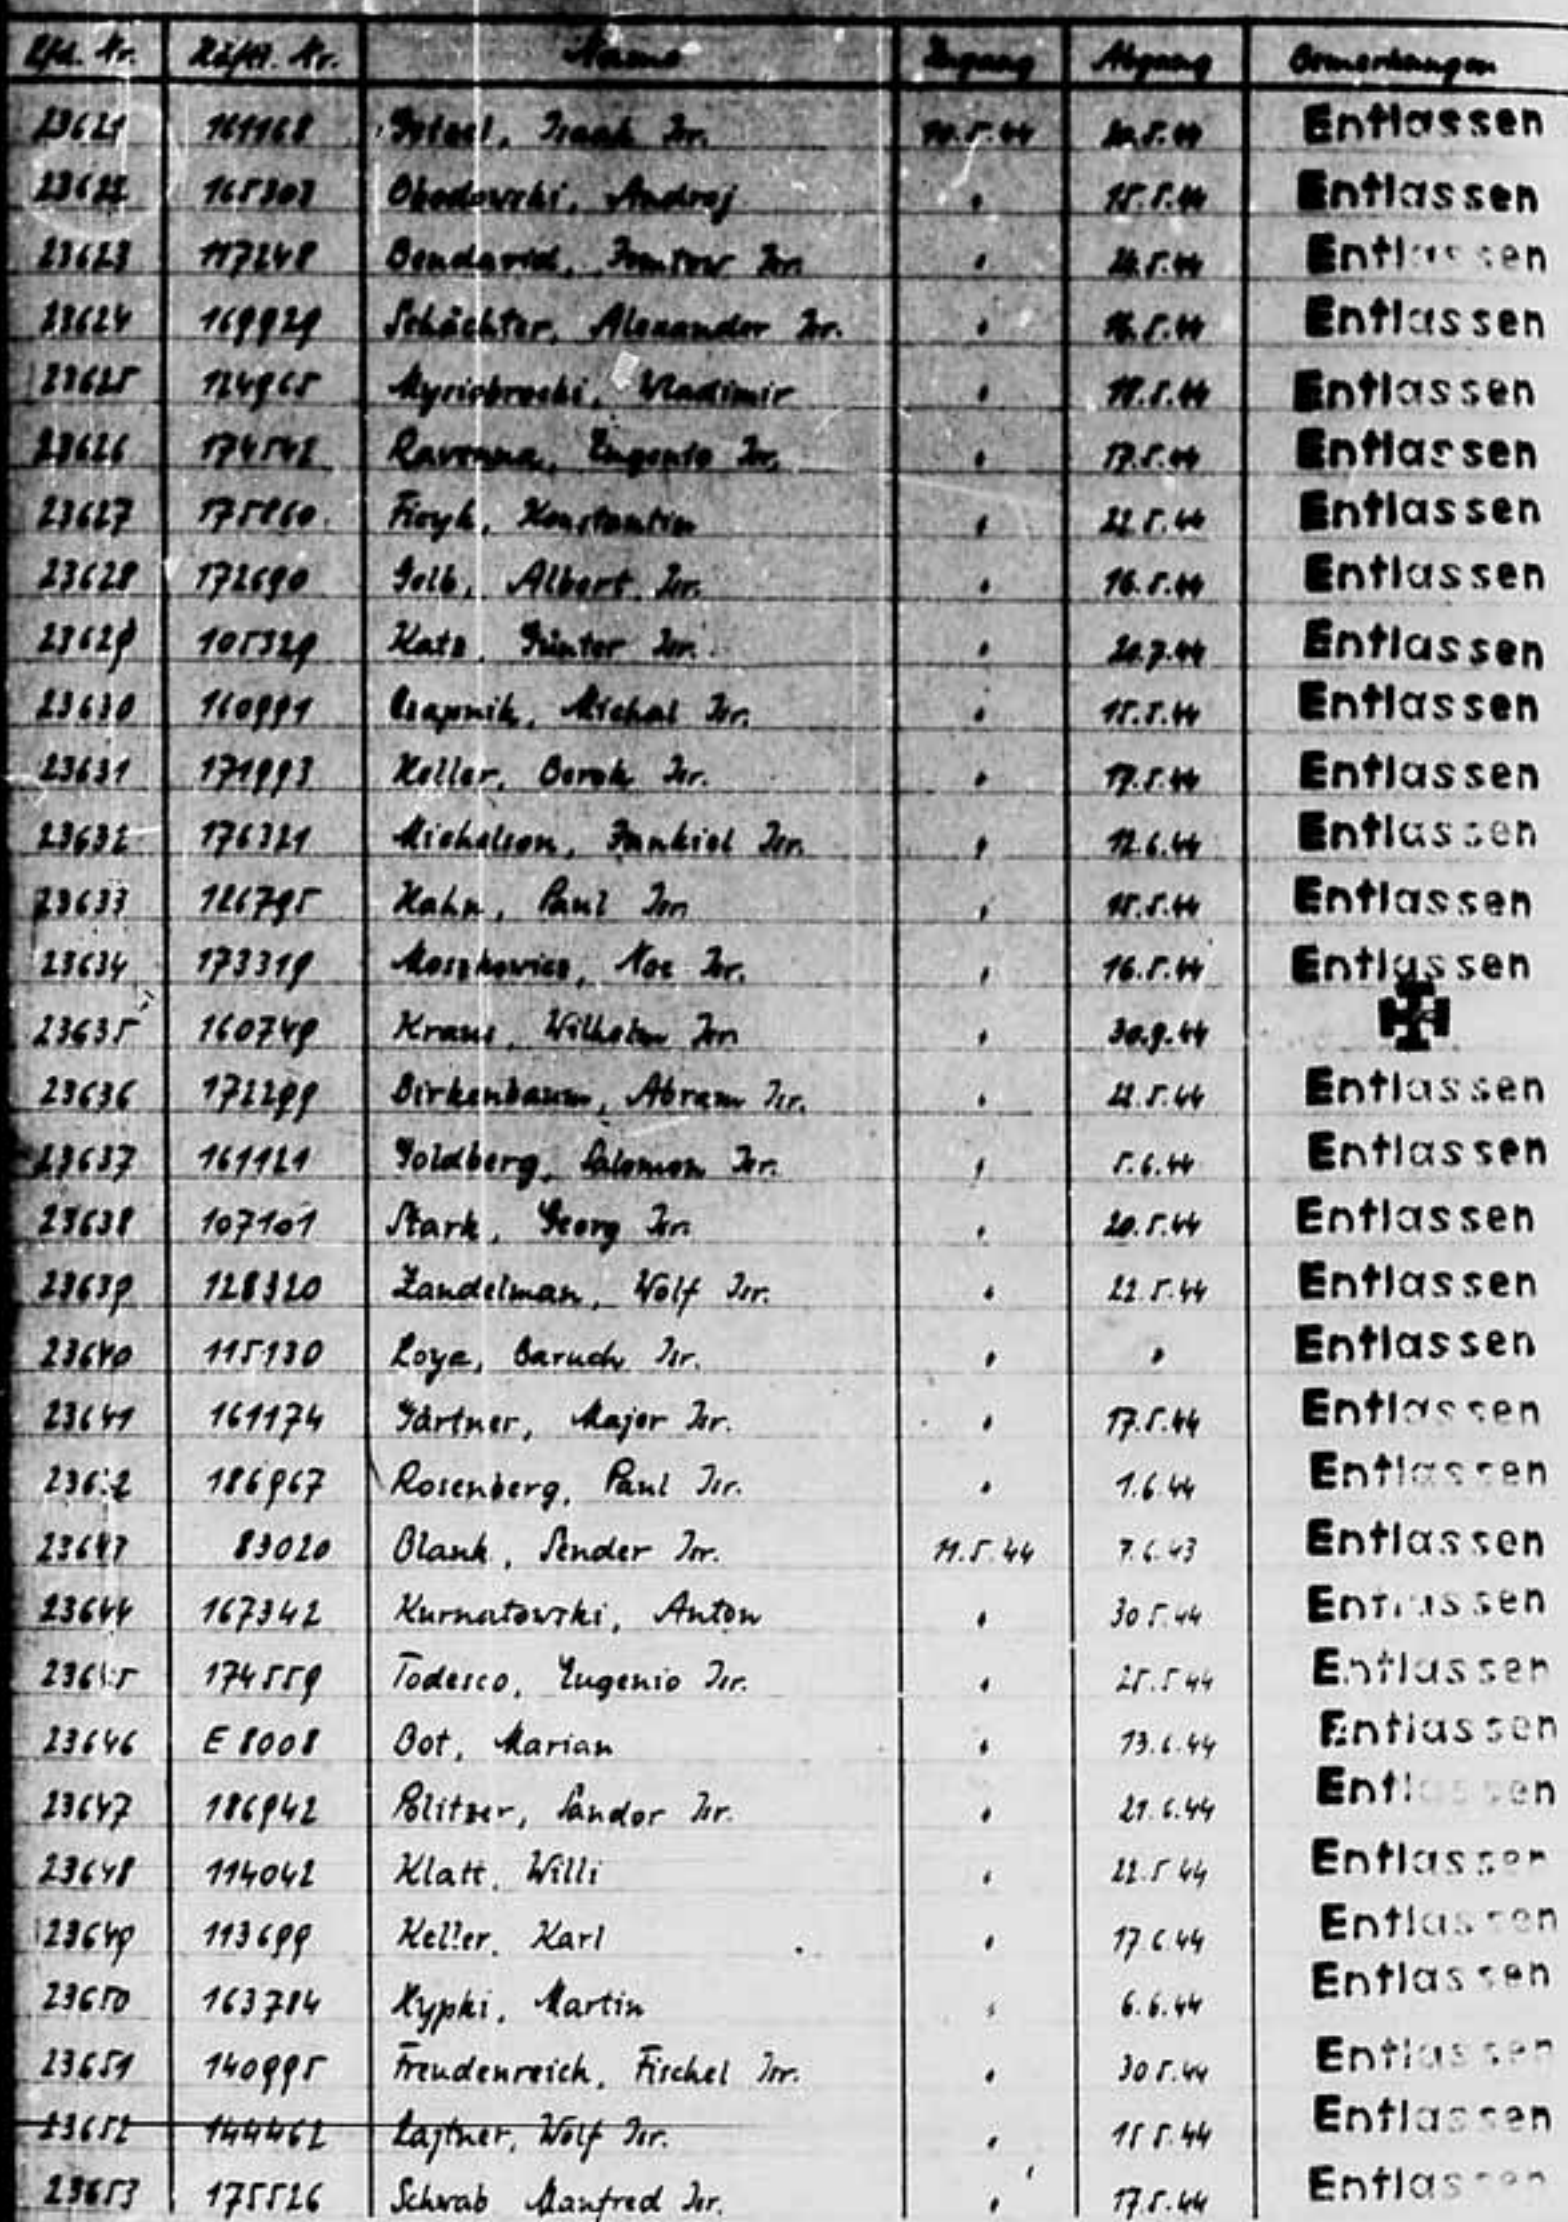 Lfd. Nr. Häftl. Nr. Name Zugang Abgang Bemerkungen
23621 161168 Isr. 10.5.44 20.5.44 Entlassen
23622 165303 Obodowski, Andrej " 15.5.44 Entlassen
23623 117248 Bendavid, Jomtow Isr. " .5.44 Entlassen
23624 169929 Schächter, Alexander Isr. " 16.5.44 Entlassen
23625 124965 Wladimir " .5.44 Entlassen
23626 174542 Ravenna, Eugenio Isr. " 17.5.44 Entlassen
23627 175860 Konstantin " 22.5.44 Entlassen
23628 172690 Golb, Albert Isr. " 16.5.44 Entlassen
23629 105329 Katz, Günter Isr. " 20.7.44 Entlassen
23630 160991 Czapnik, Michal Isr. " 15.5.44 Entlassen
23631 171993 Keller, Berek Isr. " 17.5.44 Entlassen
23632 176321 Michelson, Jankiel Isr. " 12.6.44 Entlassen
23633 126795 Hahn, Paul Isr. " 15.5.44 Entlassen
23634 173319 Moszkowicz, Noe Isr. " 16.5.44 Entlassen
23635 160749 Kraus, Wilhelm Isr. " 30.9.44
23636 172299 Birkenbaum, Abram Isr. " 22.5.44 Entlassen
23637 161121 Goldberg, Salomon Isr. " 5.6.44 Entlassen
23638 107101 Stark, Georg Isr. " 20.5.44 Entlassen
23639 128320 Zandelman, Wolf Isr. " 22.5.44 Entlassen
23640 115130 Loya, Baruch Isr. " " Entlassen
23641 161174 Gärtner, Major Isr. " 17.5.44 Entlassen
23642 186967 Rosenberg, Paul Isr. " 1.6.44 Entlassen
23643 83020 Blank, Sender Isr. 11.5.44 7.6.43 Entlassen
23644 167342 Kurnatowski, Anton " 30.5.44 Entlassen
23645 174559 Todesco, Eugenio Isr. " 25.5.44 Entlassen
23646 E 8008 Bot, Marian " 13.6.44 Entlassen
23647 186942 Politzer, Sandor Isr. " 21.6.44 Entlassen
23648 114042 Klatt, Willi " 22.5.44 Entlassen
23649 113699 Keller, Karl " 17.6.44 Entlassen
23650 163784 Hypki, Martin " 6.6.44 Entlassen
23651 140995 Freudenreich, Fischel Isr. " 30.5.44 Entlassen
23652 144462 Lajtner, Wolf Isr. " 15.5.44 Entlassen
23653 175526 Schwab Manfred Isr. " 17.5.44 Entlassen